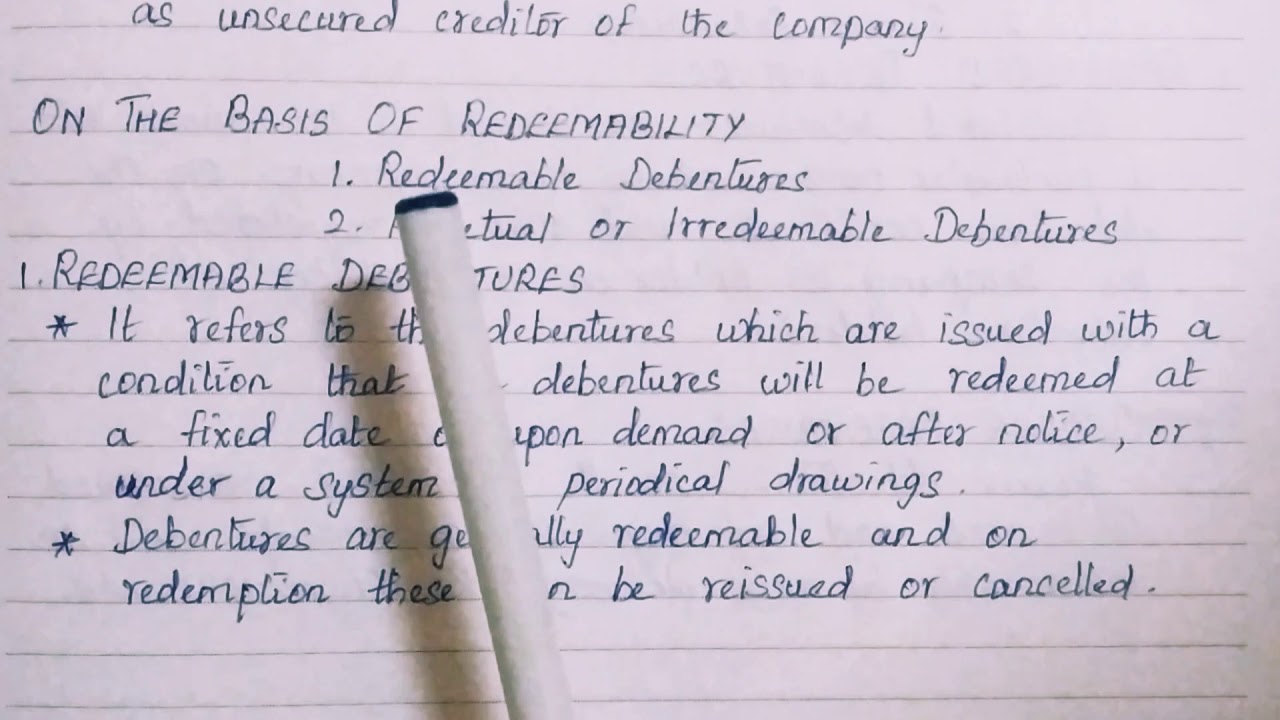 as unsecured creditor of the company.
ON THE BASIS OF REDEEMABILITY
1. Redeemable Debentures
2. etual or Irredeemable Debentures
1. REDEEMABLE DEB TURES
* It refers to th debentures which are issued with a
condition that debentures will be redeemed at
a fixed date upon demand or after notice, or
under a system periodical drawings.
* Debentures are ge lly redeemable and on
redemption these be reissued or cancelled.